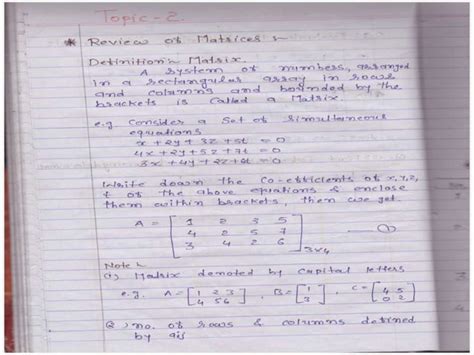 Topic-2.
* Review of Matrices :-
Definition:- Matrix.
A system of numbers, arranged
in a rectangular array in rows
and columns and bounded by the
brackets is called a Matrix.
e.g. Consider a set of simultaneous
equations
x + 2y + 3z + 5t = 0
4x + 2y + 5z + 7t = 0
3x + 4y + 2z + 6t = 0
Write down the Co-efficients of x, y, z,
t of the above equations & enclose
them within brackets, then we get
A = [ 1 2 3 5
4 2 5 7
3 4 2 6 ] 3x4 — ①
Note :-
(1) Matrix denoted by Capital letters
e.g. A = [ 1 2 3
4 5 6 ], B = [ 1
3 ], C = [ 4 5
0 2 ]
② no. of rows & columns defined
by aij